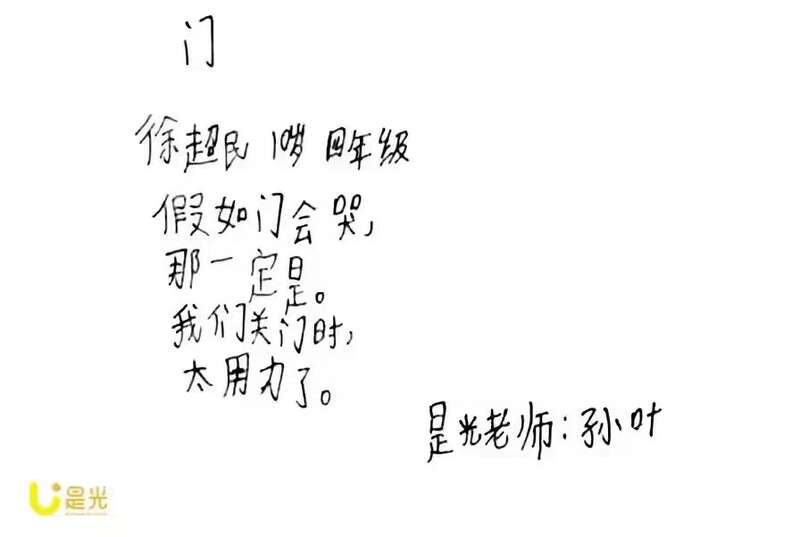 门
徐超民 10岁 四年级
假如门会哭，
那一定是。
我们关门时，
太用力了。
是光老师：孙叶
是光